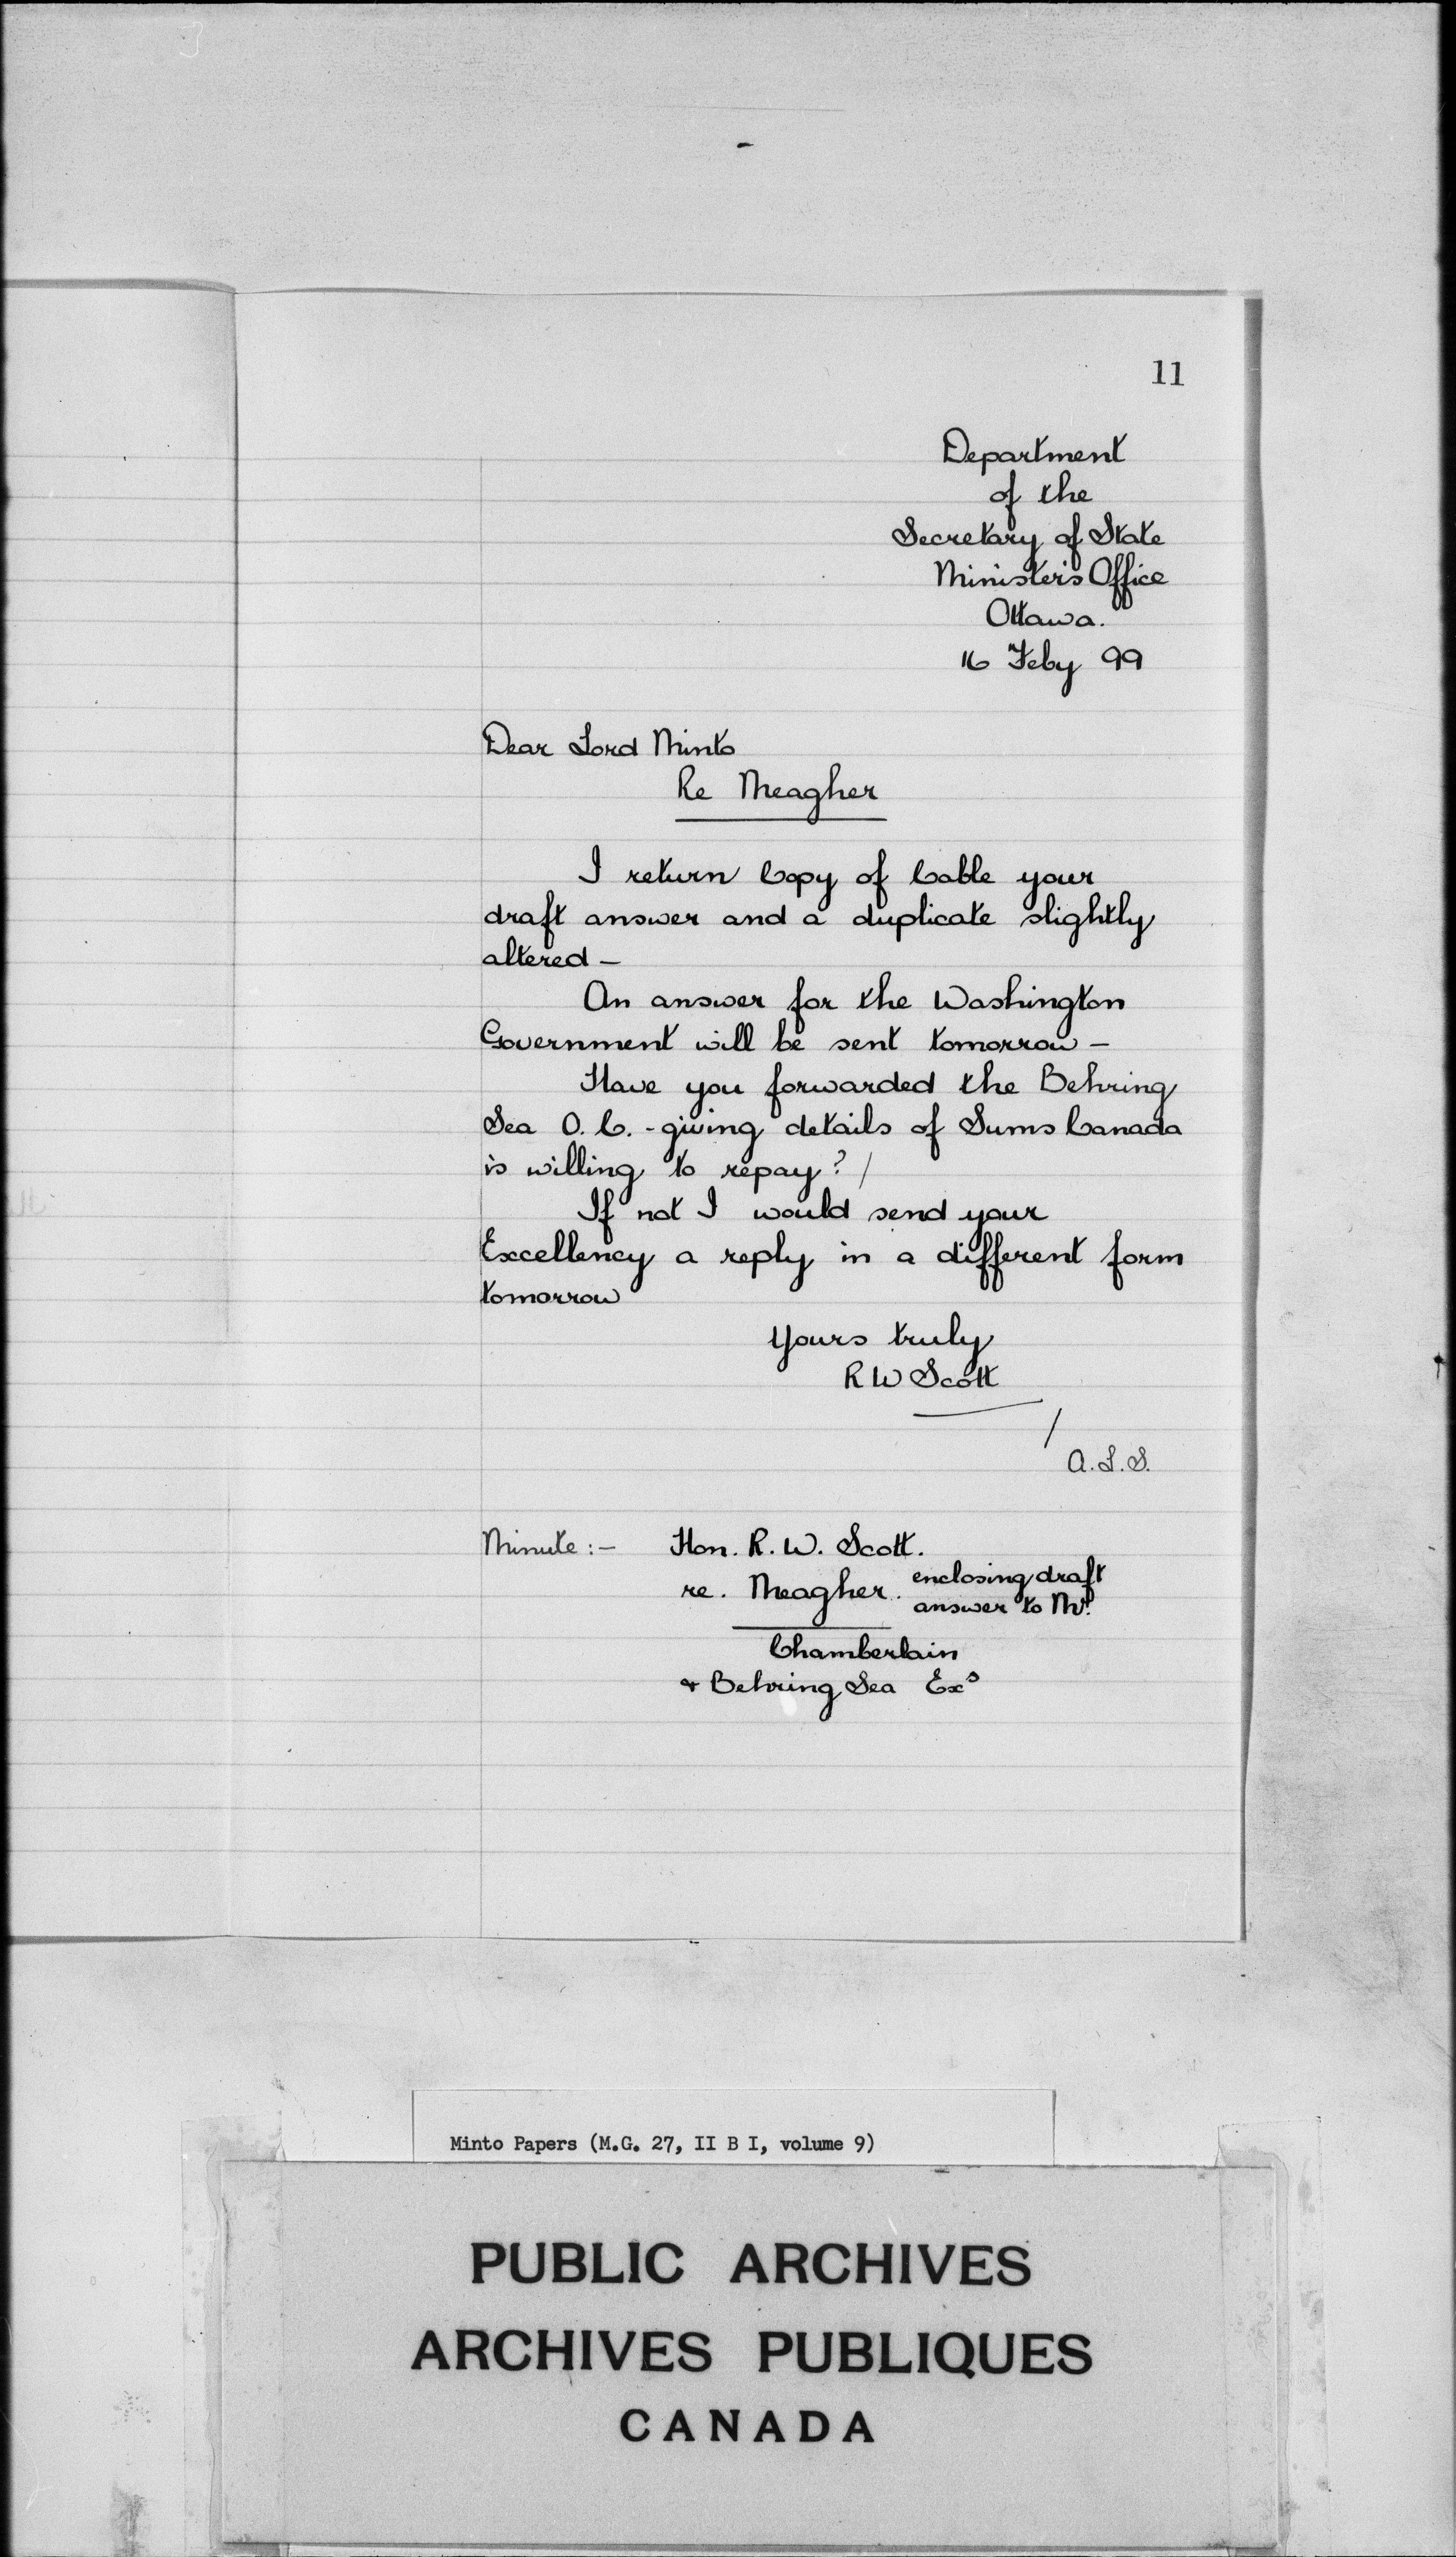 11
Department
of the
Secretary of State
Minister's Office
Ottawa.
16 Feby 99
Dear Lord Minto
Re Meagher
I return Copy of Cable your
draft answer and a duplicate slightly
altered —
An answer for the Washington
Government will be sent tomorrow —
Have you forwarded the Behring
Sea O. C. - giving details of Sums Canada
is willing to repay? /
If not I would send your
Excellency a reply in a different form
tomorrow
Yours truly
R W Scott
/
A.L.S.
Minute :- Hon. R. W. Scott.
re. Meagher. enclosing draft
answer to Mr.
Chamberlain
& Behring Sea Exs
Minto Papers (M.G. 27, II B I, volume 9)
PUBLIC ARCHIVES
ARCHIVES PUBLIQUES
CANADA